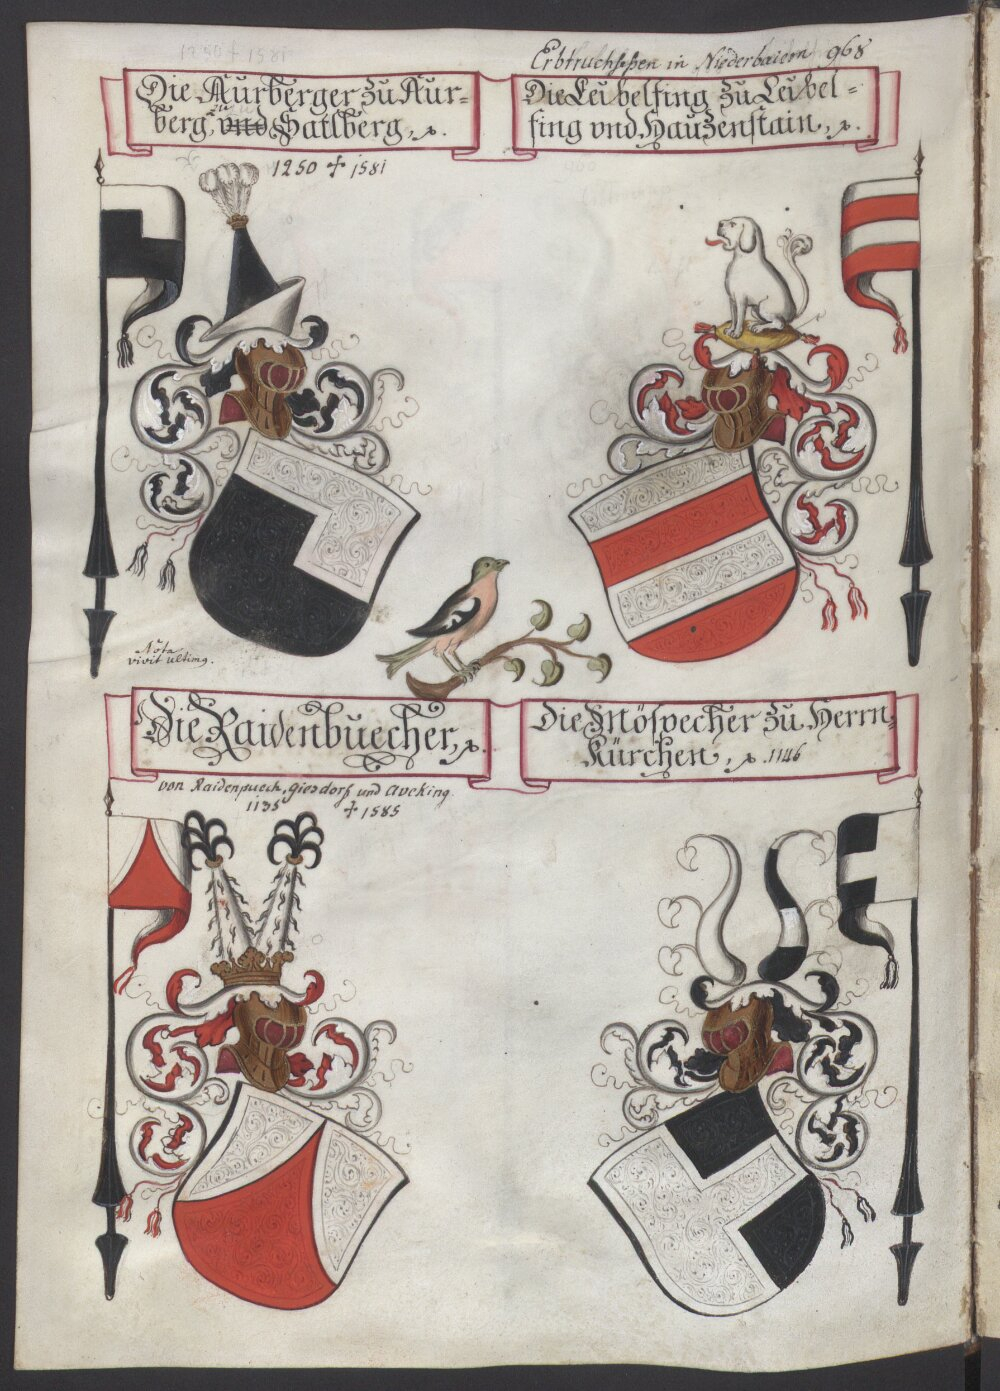 1250 † 1581
Erbtruchseßen in Niederbaiern 968
Die Aurberger zu Aur-
berg, zu und Satlberg, ꝛ.
1250 † 1581
Die Leibelfing zu Leibel-
fing vnd Hauzenstain, ꝛ.
Nota
vivit ultimg.
Die Raidenbuecher, ꝛ.
von Raidenpuech, Giesdorf und Aveking.
1135 † 1585
Die Möspecher zu Herrn
Kürchen, ꝛ. 1146